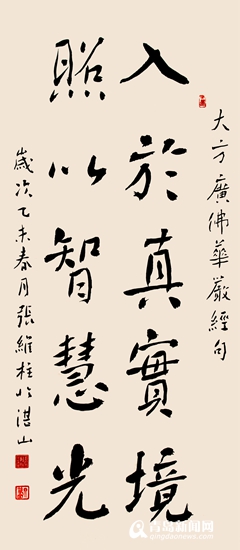 大方廣佛華嚴經句
入於真實境
照以智慧光
歲次乙未春月張維柱於湛山
青岛新闻网
qingdaonews.com